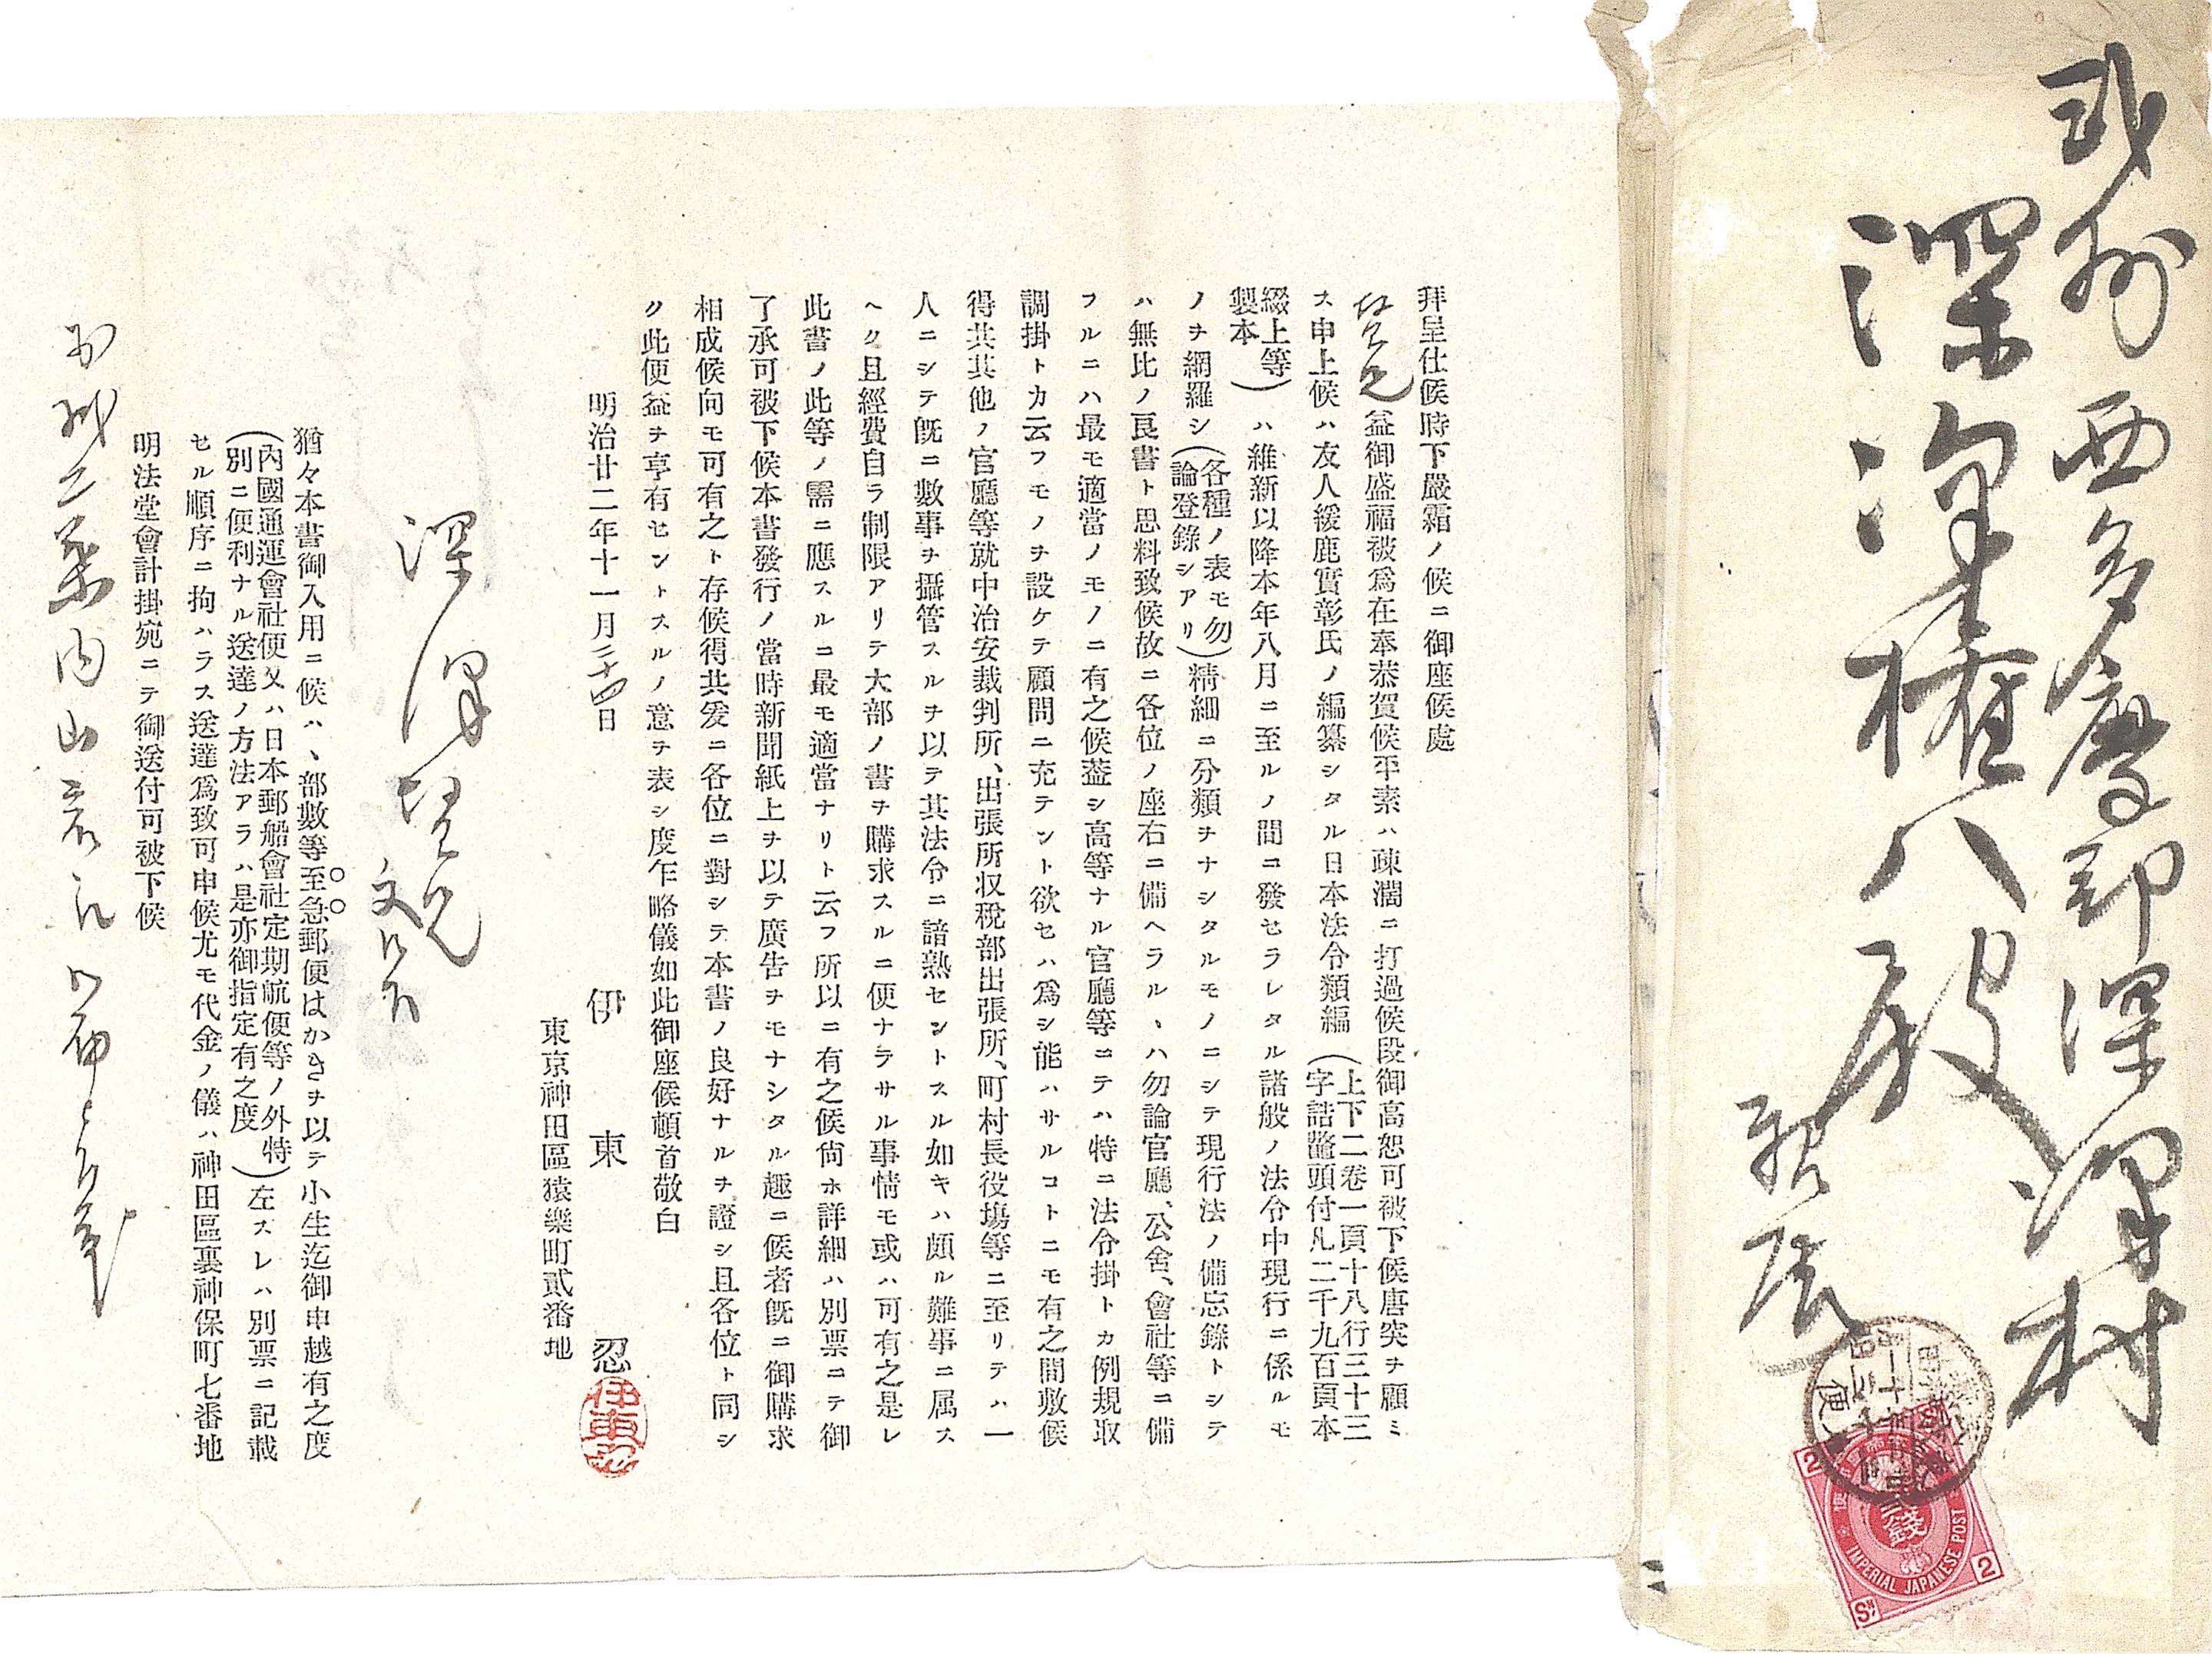 武州西多摩郡深澤村
深澤權八殿
親展
二錢
IMPERIAL JAPANESE POST
2
2
SN
拜呈仕候時下嚴霜ノ候ニ御座候處
貴兄益御盛福被爲在奉恭賀候平素ハ疎濶ニ打過候段御高恕可被下候唐突ヲ顧ミ
ス申上候ハ友人緩鹿實彰氏ノ編纂シタル日本法令類編(上下二卷一頁十八行三十三字詰鼇頭付凡二千九百頁本
綴上等製本)ハ維新以降本年八月ニ至ルノ間ニ發セラレタル諸般ノ法令中現行ニ係ルモ
ノヲ網羅シ(各種ノ表モ勿論登錄シアリ)精細ニ分類ヲナシタルモノニシテ現行法ノ備忘錄トシテ
ハ無比ノ良書ト思料致候故ニ各位ノ座右ニ備ヘラル、ハ勿論官廳、公舍、會社等ニ備
フルニハ最モ適當ノモノニ有之候蓋シ高等ナル官廳等ニテハ特ニ法令掛トカ例規取
調掛トカ云フモノヲ設ケテ顧問ニ充テント欲セハ爲シ能ハサルコトニモ有之間敷候
得共其他ノ官廳等就中治安裁判所、出張所収稅部出張所、町村長役塲等ニ至リテハ一
人ニシテ旣ニ數事ヲ攝管スルヲ以テ其法令ニ諳熟セントスル如キハ頗ル難事ニ属ス
ヘク且經費自ラ制限アリテ大部ノ書ヲ購求スルニ便ナラサル事情モ或ハ可有之是レ
此書ノ此等ノ需ニ應スルニ最モ適當ナリト云フ所以ニ有之候尙ホ詳細ハ別票ニテ御
了承可被下候本書發行ノ當時新聞紙上ヲ以テ廣告ヲモナシタル趣ニ候者旣ニ御購求
相成候向モ可有之ト存候得共爰ニ各位ニ對シテ本書ノ良好ナルヲ證シ且各位ト同シ
ク此便益ヲ享有セントスルノ意ヲ表シ度乍略儀如此御座候頓首敬白
明治廿二年十一月二十四日
伊東忍
東京神田區猿樂町貳番地
深澤賢兄
猶々本書御入用ニ候ハ、部數等至急郵便はかきヲ以テ小生迄御申越有之度
(內國通運會社便又ハ日本郵船會社定期航便等ノ外特別ニ便利ナル送達ノ方法アラハ是亦御指定有之度)左スレハ別票ニ記載
セル順序ニ拘ハラス送達爲致可申候尤モ代金ノ儀ハ神田區裏神保町七番地
明法堂會計掛宛ニテ御送付可被下候